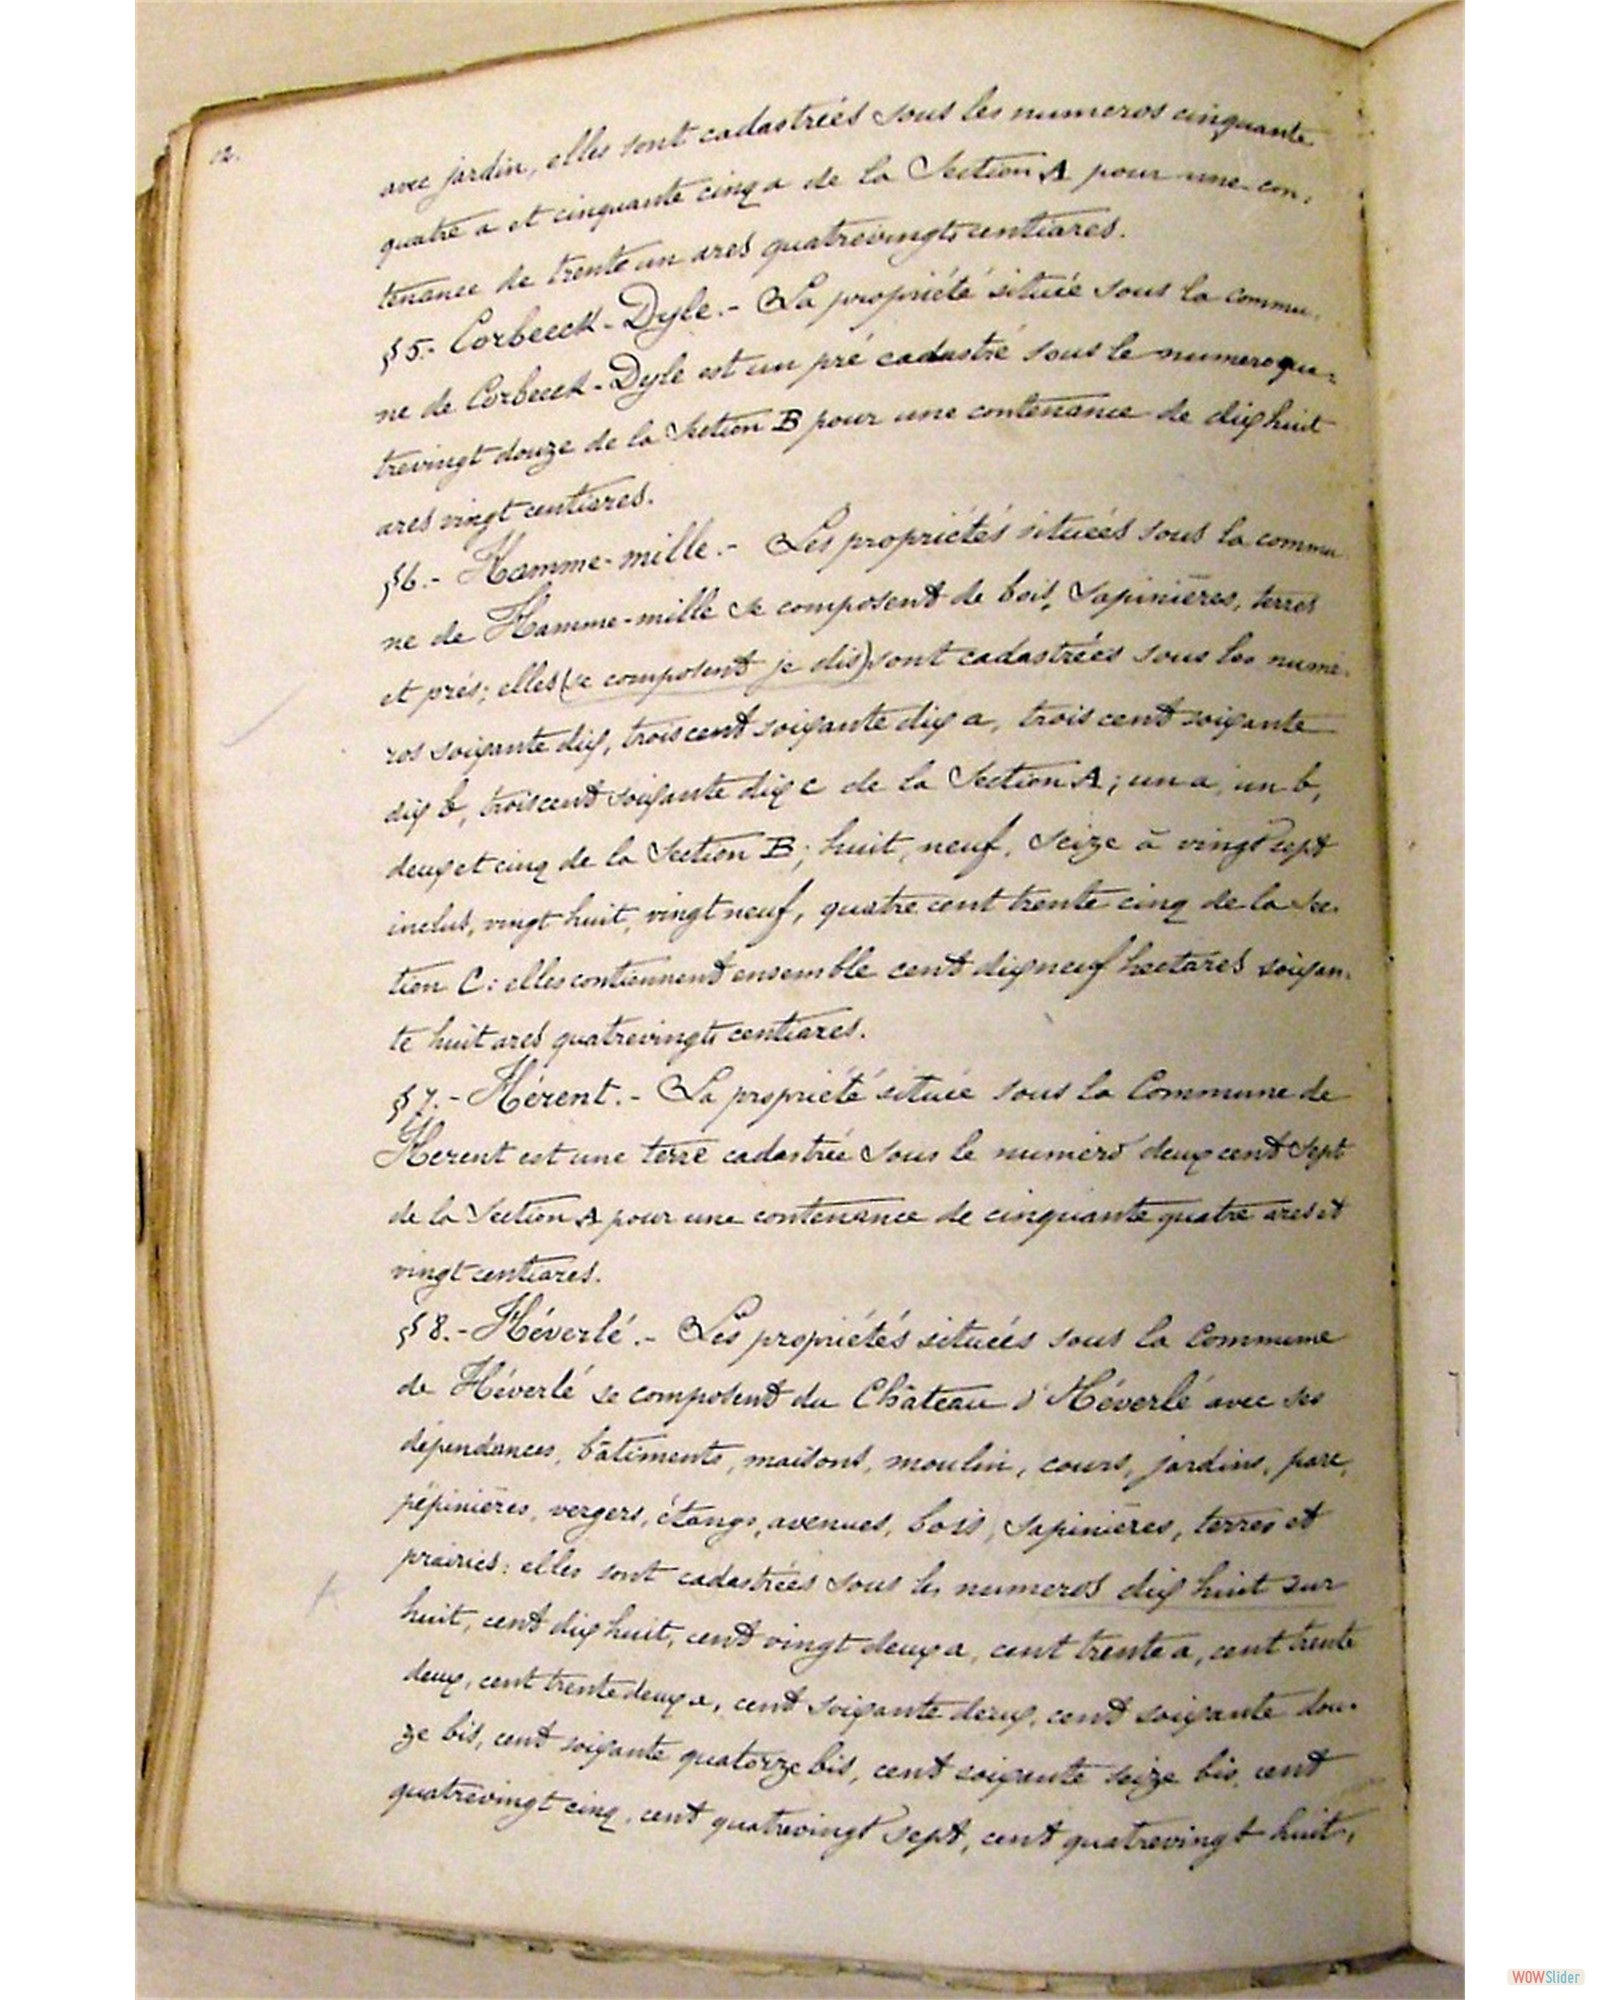 12.
avec jardin, elles sont cadastrées sous les numeros cinquante
quatre a et cinquante cinq a de la Section A pour une con-
tenance de trente un ares quatrevingts centiares.
§ 5.- Corbeeck-Dyle.- La propriété située sous la commu-
ne de Corbeeck-Dyle est un pré cadastré sous le numero qua-
trevingt douze de la Section B pour une contenance de dix huit
ares vingt centiares.
§ 6.- Hamme-mille.- Les propriétés situées sous la commu
ne de Hamme-mille se composent de bois, Sapinières, terres
et prés; elles (se composent je dis) sont cadastrées sous les numé-
ros soixante dix, trois cent soixante dix a, trois cent soixante
dix b, trois cent soixante dix c de la Section A; un a, un b,
deux et cinq de la Section B; huit, neuf, Seize à vingt sept
inclus, vingt huit, vingt neuf, quatre cent trente cinq de la Sec-
tion C: elles contiennent ensemble cent dix neuf hectares soixan-
te huit ares quatrevingts centiares.
§ 7.- Hérent.- La propriété située sous la Commune de
Herent est une terre cadastrée sous le numéro deux cent sept
de la Section A pour une contenance de cinquante quatre ares et
vingt centiares.
§ 8.- Héverlé.- Les propriétés situées sous la Commune
de Héverlé se composent du Château d'Héverlé avec ses
dépendances, bâtiments, maisons, moulin, cours, jardins, parc,
pépinières, vergers, étangs, avenues, bois, Sapinières, terres et
prairies: elles sont cadastrées sous les numeros dix huit sur
huit, cent dix huit, cent vingt deux a, cent trente a, cent trente
deux, cent trente deux a, cent soixante deux, cent soixante dou-
ze bis, cent soixante quatorze bis, cent soixante seize bis, cent
quatrevingt cinq, cent quatrevingt sept, cent quatrevingt huit,
WOWSlider